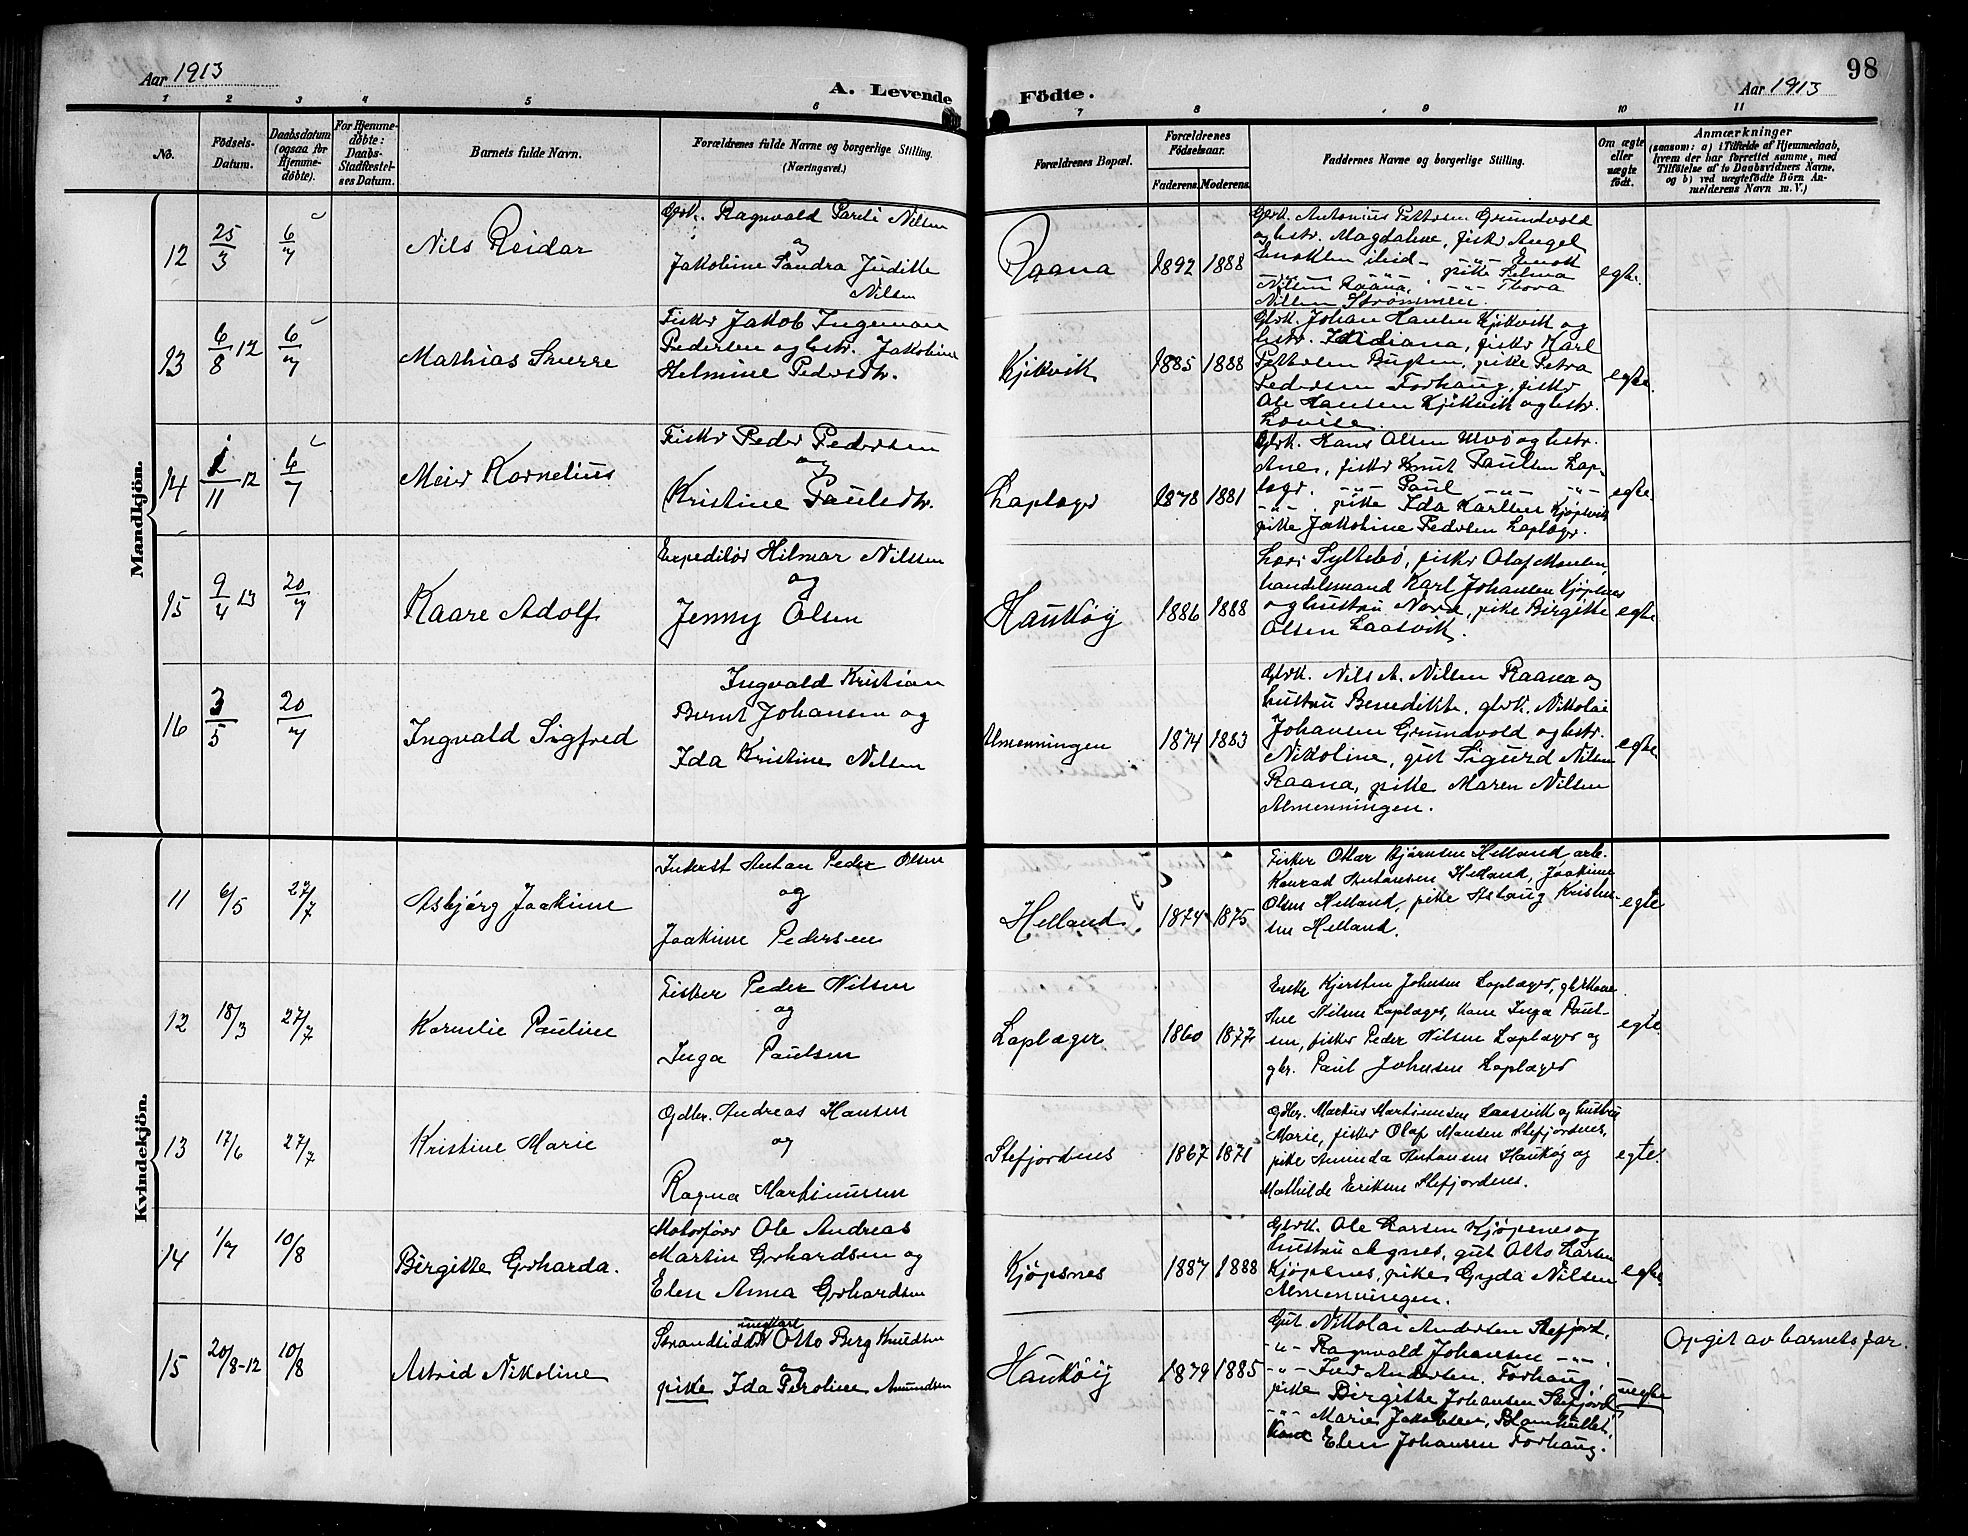 Aar 1913
A. Levende Födte.
Aar 1913
98
1 2 3 4 5 6 7 8 9 10 11
No.
Födsels-Datum.
Daabsdatum (ogsaa for Hjemmedöbte).
For Hjemmedöbte: Daabs-Stadfæstelses Datum.
Barnets fulde Navn.
Forældrenes fulde Navne og borgerlige Stilling. (Næringsvei.)
Forældrenes Bopæl.
Forældrenes Födselsaar.
Faderens. Moderens.
Faddernes Navne og borgerlige Stilling.
Om ægte eller uægte födt.
Anmærkninger
(saasom: a) i Tilfælde af Hjemmedaab,
hvem der har forrettet samme, med
Tilföielse af to Daabsvidners Navne,
og b) ved uægtefödte Börn Anmelderens Navn m. V.)
Mandkjön.
12
25/3
6/7
Nils Reidar
Gbrk. Ragnvald Pareli Nilsen
og
Jakobine Sandra Juditte
Nilsen
Raana
1892 1888
Gbrk. Antonius Pettersen Grundvold
og hstr. Magdalene, fisker Angel
Enoksen ibid - " - Enok
" - pike Selma
Nilsen Raana, " - Thora
Nilsen Strømmen.
egte.
13
6/8 12
6/7
Mathias Sverre
Fisker Jakob Ingeman
Pedersen og hstr. Jakobine
Helmine Pedersdtr.
Kjikvik
1885 1888
Gbrk. Johan Hansen Kjikvik og
hstr. Ididiana, fisker Karl
Pettersen Bugten, pike Petra
Pedersen Forhaug, fisker
Ole Hansen Kjikvik og hstr.
Lovise.
egte.
14
1/11 12
6/7
Meier Kornelius
Fisker Peder Pedersen
og
Kristine Paulsdtr.
Laplæger
1878 1881
Gbrk. Hans Olsen Ulvø og hstr.
Ane, fisker Knut Paulsen Laplægr.
" - Paul " - " -
" - pike Ida Karlsen Kjøpsvik
pike Jakobine Pedersen Laplægr.
egte.
15
9/4 13
20/7
Kaare Adolf
Expeditør Hilmar Nilssen
og
Jenny Olsen
Haukøy
1886 1888
Syltebø, fisker Olaf
handelsmand Karl Johansen Kjøpsnes
og hustru Nora, pike Birgitte
Olsen Laasvik.
egte
16
3/5
20/7
Ingvald Sigfred
Ingvald Kristian
Bernt Johansen og
Ida Kristine Nilsen
Almenningen
1874 1883
Gbrk. Nils A. Nilsen Raana og
hustru Benedikte, gbrk. Nikolai
Johansen Grundvold og hstr.
Nikoline, gut Sigurd Nilsen
Raana, pike Maren Nilsen
Almenningen.
egte
Kvindekjön.
11
6/5
27/7
Asbjørg Joakime
Inderst Anton Peder Olsen
og
Joakime Pedersen
Helland
1874 1875
Fisker Ottar Bjørnsen Helland, arb.
Konrad Antonsen Helland, Joakime
Olsen Helland, pike Aslaug Kristensen
Helland.
egte
12
18/3
27/7
Kornelie Pauline
Fisker Peder Nilsen
og
Inga Paulsen
Laplæger
1860 1877
Enke Kjersten Johnsen Laplæger, gbrkone
Ane Nilsen Laplæger, kone Inga Paulsen,
fisker Peder Nilsen Laplæger og
gbr. Paul Johnsen Laplæger
egte
13
17/6
27/7
Kristine Marie
Gdbr. Andreas Hansen
og
Ragna Martinusen
Stefjordnes
1867 1871
Gdbr. Markus Martinusen Laasvik og hustru
Marie, fisker Olaf Monsen Stefjordnes,
pike Aminda Antonsen Haukøy og
Mathilde Eriksen Stefjordnes.
egte.
14
1/7
10/8
Birgitte Gerharda.
Motorfører Ole Andreas
Martin Gerhardsen og
Elen Anna Gerhardsen
Kjøpsnes
1887 1888
Gbrk. Ole Larsen Kjøpsnes og
hustru Agnes, gut Otto Larsen
Kjøpsnes, pike Gyda Nilsen
Almenningen.
egte
15
20/8-12
10/8
Astrid Nikoline
Strandsidder ungkarl Otto Berg Knudsen
og
pike Ida Peroline Amundsen
Haukøy
1879 1885
Gut Nikolai Andersen Stefjord,
" - Ragnvald Johansen " - .
" - Andersen, Forhaug,
pike Birgitte Johansen Stefjord,
" - Marie Jakobsen,
Kone Elen Johansen Forhaug.
uegte
Opgit av barnets far.